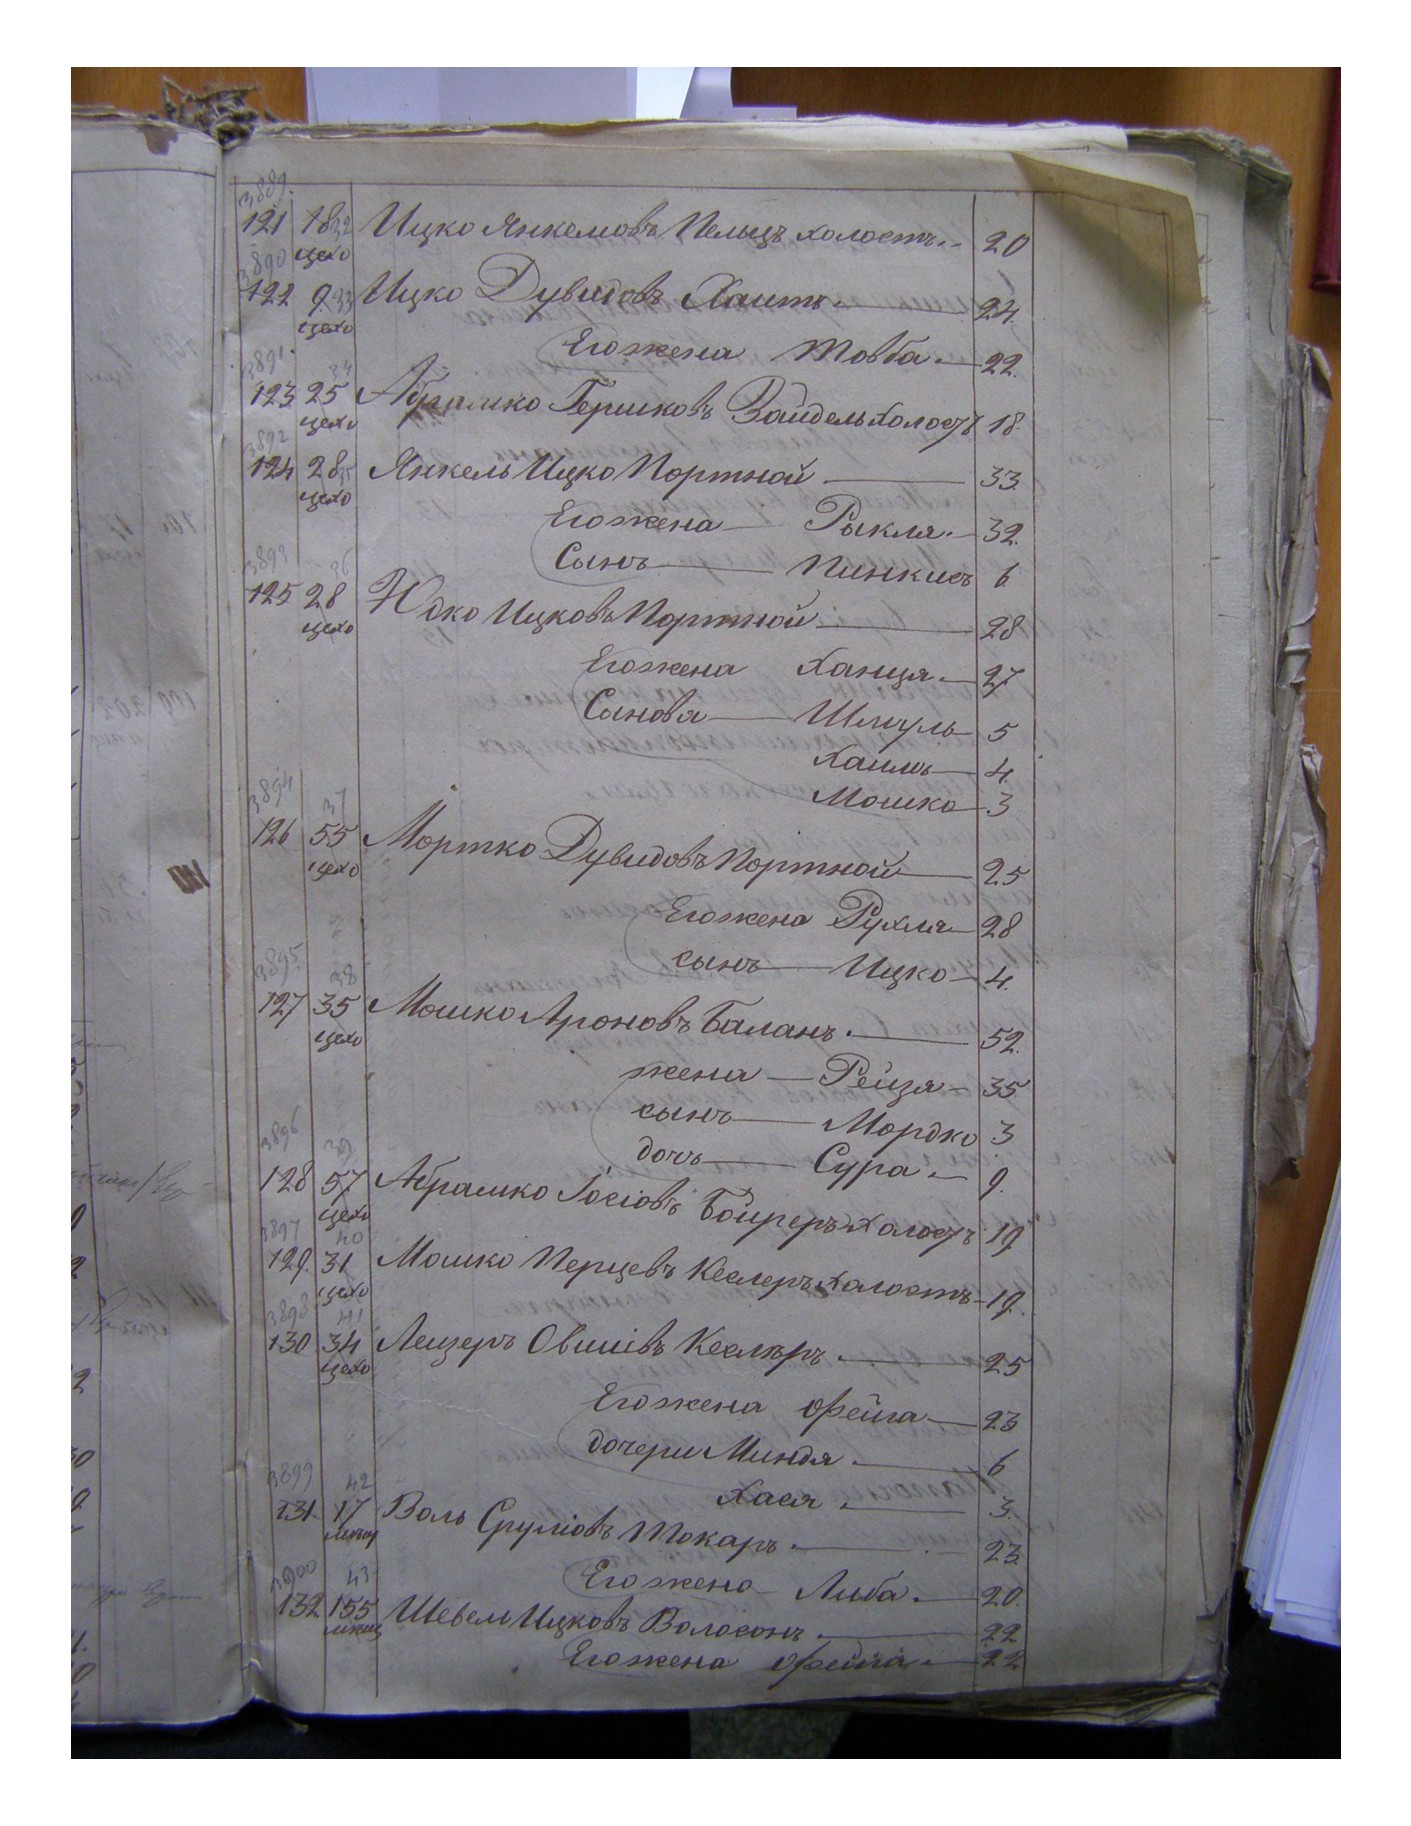 3889.
121 18 32 Ицко Янкелювъ Пельцъ холостъ. 20
3890 цехо
122 9. 33 Ицко Дувидовъ Хаитъ. 24.
цехо
Его жена Товба. 22.
3891. 34
123 25 Абрамко Гершковъ Зайдель холостъ 18.
цехо
3892
124 28 35 Янкель Ицко Портной 33.
цехо
Его жена Рыкля. 32.
Сынъ Пинкисъ 6
3893 36
125 28 Юдко Ицковъ Портной 28
цехо
Его жена Ханця. 27
Сыновя Шмуль 5
Хаимъ 4.
Мошко 3
3894 37
126 55 Мортко Дувидовъ Портной 25
цехо
Его жена Рухля 28
сынъ Ицко 4.
3895. 38
127 35 Мошко Ароновъ Баланъ. 52.
цехо
жена Рейзя 35.
сынъ Мордко 3
дочь Сура. 9.
3896 39
128 57 Абрамко Іосіовъ Бойреръ холостъ 19.
цехо
3897 40
129. 31 Мошко Перцевъ Кеслеръ холостъ 19.
цехо
3898 41
130 34 Лейзеръ Овшіовъ Кеслеръ. 25
цехо
Его жена Фейга 23
дочери Миндя. 6
Хася. 3.
3899 42
131. 17 Воль Сруліовъ Токаръ. 23.
Его жена Либа. 20.
3900 43
132 155 Шевель Ицковъ Волосонъ. 22
Его жена Фейга. 22